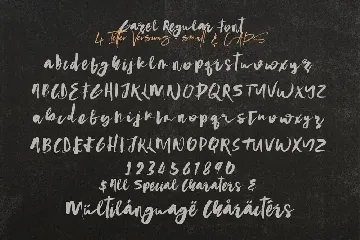 Carel Regular Font
4 Letter Versions - small & CAPS
abcdefghijklmnopqrstuvwxyz
ABCDEFGHIJKLMNOPQRSTUVWXYZ
abcdefghijklmnopqrstuvwxyz
ABCDEFGHIJKLMNOPQRSTUVWXYZ
1234567890
$ All Special Charaters &
Mültilánguagë Chåräctérs